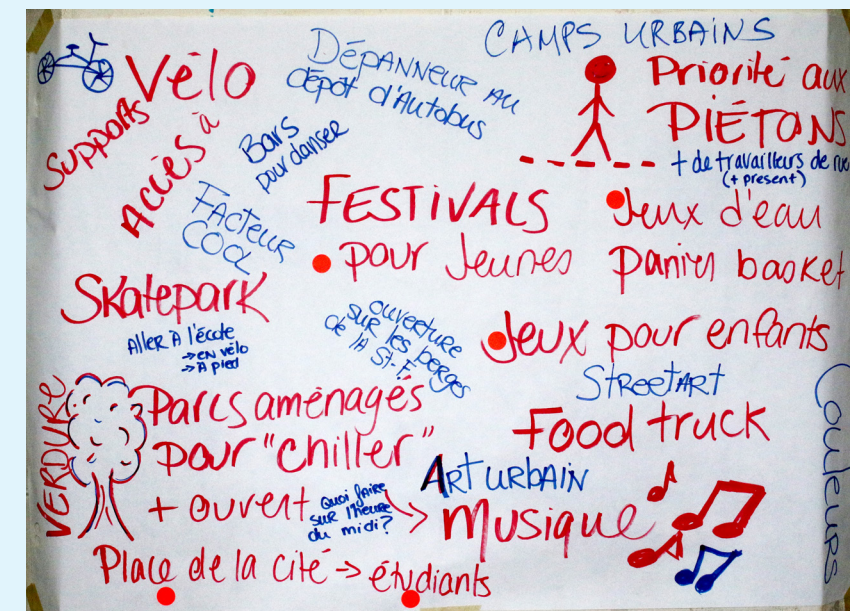 CAMPS URBAINS
DÉPANNEUR AU
dépôt d'Autobus
Vélo
Supports
Accès à
Bars
pour danser
Priorité aux
PIÉTONS
+ de travailleurs de rue
(+ présent)
FACTEUR
COOL
FESTIVALS
pour Jeunes
Jeux d'eau
Paniers basket
Skatepark
Aller à l'école
→ en vélo
→ à pied
ouverture
sur les berges
de la St-F.
Jeux pour enfants
StreetArt
Food truck
Couleurs
VERDURE
Parcs aménagés
pour "chiller"
+ ouvert
Quoi faire
sur l'heure
du midi?
Art urbain
Musique
Place de la cité → étudiants